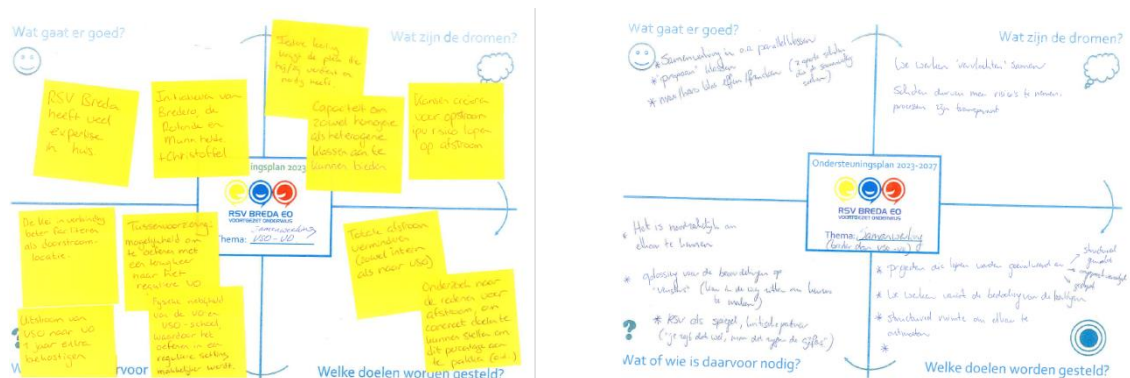 Wat gaat er goed?
Wat zijn de dromen?
RSV Breda
heeft veel
expertise
in huis
Initiatieven van
Bredero, de
Rotonde en
Munnikheide
+ Christoffel
Iedere leerling
krijgt de plek die
hij/zij verdient en
nodig heeft
Capaciteit om
zowel homogene
als heterogene
klassen aan te
kunnen bieden
Kansen creëren
voor opstroom
ipv risico lopen
op afstroom
ningsplan 2023
RSV BREDA EO
VOORTGEZET ONDERWIJS
Thema: Samenwerking
VSO-VO
beter faciliteren
als doorstroom-
locatie.
Tussenvoorziening:
mogelijkheid om
te oefenen met
een terugkeer
naar het
reguliere VO
Totale afstroom
verminderen
(zowel intern
als naar VSO)
Uitstroom van
VSO naar VO
1 jaar extra
bekostigen
Fysieke nabijheid
van de VO en
VSO-school,
waardoor het
oefenen in een
reguliere setting
makkelijker wordt.
Onderzoek naar
de redenen voor
afstroom, om
concreet doelen te
kunnen stellen om
dit percentage aan
te pakken (evt.)
?
rvoor
Welke doelen worden gesteld?
Wat gaat er goed?
Wat zijn de dromen?
* Samenwerking in o.a. parallelklassen
* 'proeven' klassen
We werken 'verbonden' samen
Scholen durven meer risico's te nemen:
processen zijn transparant
Ondersteuningsplan 2023-2027
RSV BREDA EO
VOORTGEZET ONDERWIJS
Thema: Samenwerking
(breder dan VSO-VO)
* Het is noodzakelijk om
elkaar te kennen
* oplossing van de beoordelingen op
* RSV als spiegel,
("je zegt dat wel, maar dat zeggen de cijfers")
* projecten die lopen worden geëvalueerd en
structureel
gestopt
* We werken vanuit de bedoeling van de
* structureel ruimte om elkaar te
ontmoeten
*
?
Wat of wie is daarvoor nodig?
Welke doelen worden gesteld?